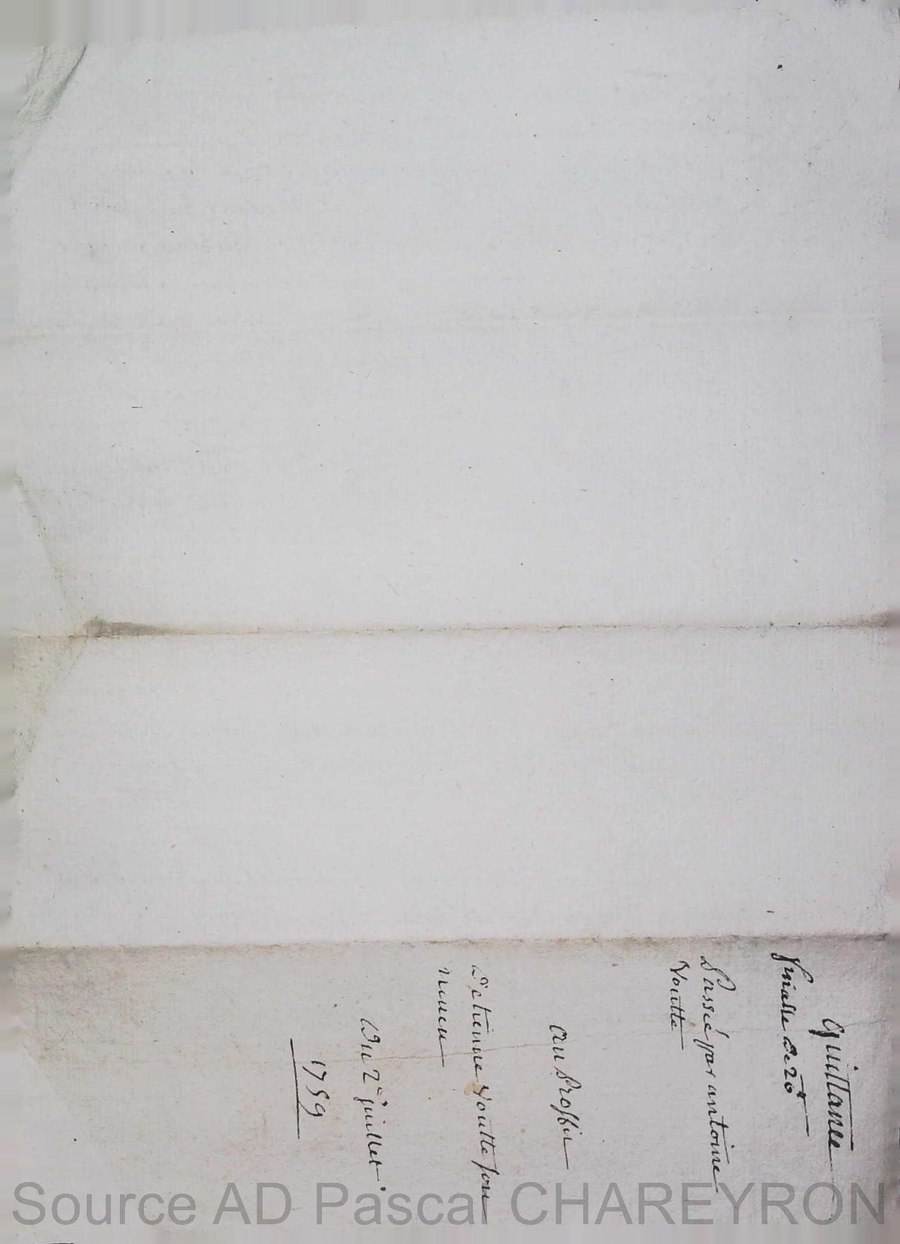 Quittance
finalle de 20#
Passée par antoine
Voutte
au Proffit
d'etienne Voutte son
neveu
Du 2e juillet
1759
Source AD Pascal CHAREYRON